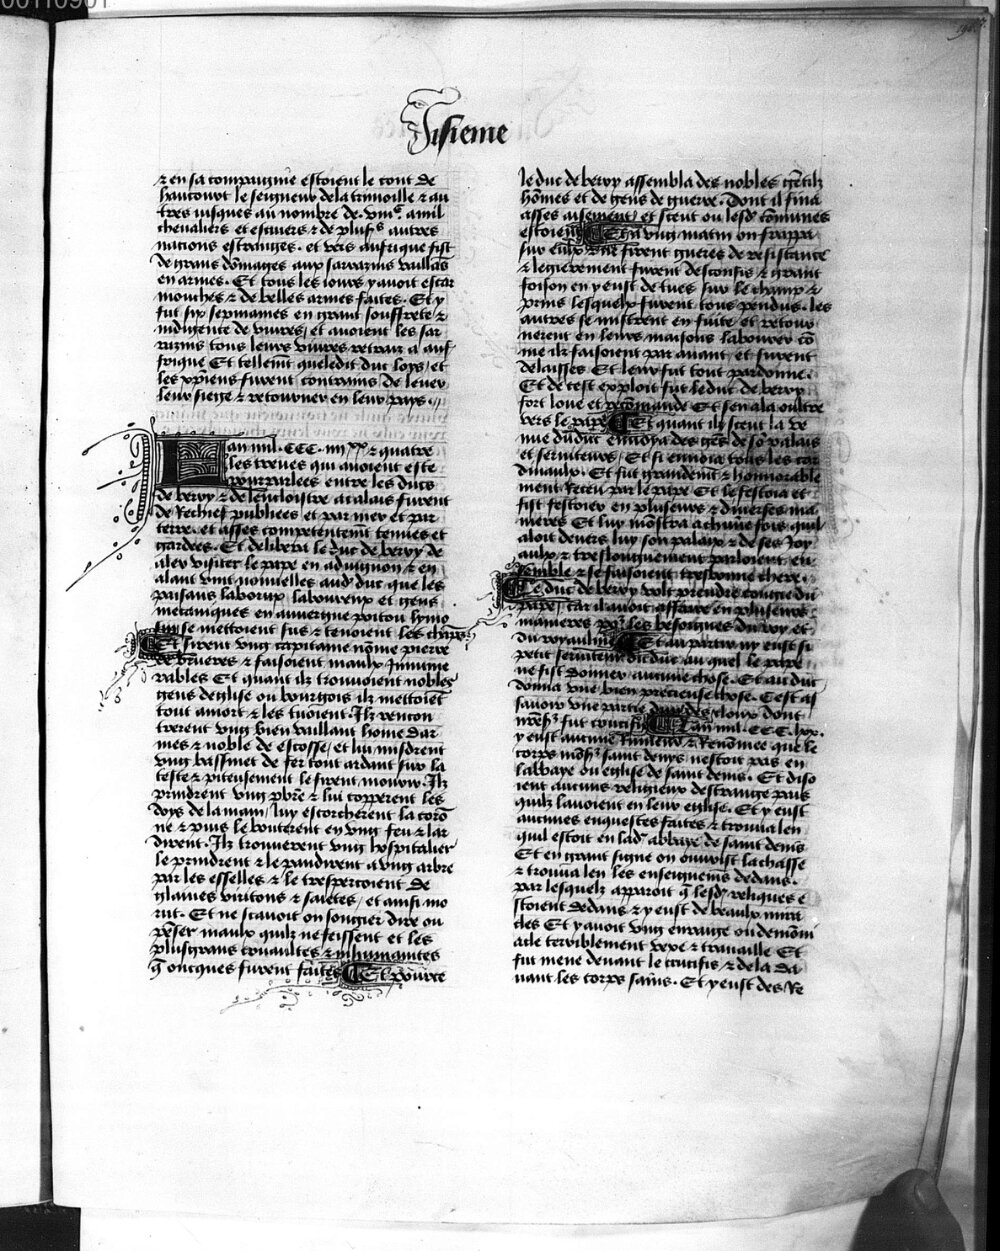 00110901
Sisieme
⁊ en sa compaignie estoient le cont de
harcourt le seigneur de la trimoille ⁊ au
tres iusques au nombre de .viiiᶜ. a mil
cheualiers et escuiers ⁊ de plusˢ autres
nacions estranges. et vers aufrique fist
de grans dōmages aux sarrazins vaillās
en armes. Et tous les iours y auoit escar
mouches ⁊ de belles armes faites. Et y
fut six sepmaines en grant souffrete ⁊
indigence de viures, et auoient les sar
razins tous leurs viures retraiz a auf
frique Et tellemt que ledit duc loys, et
les xp̄iens furent contrains de leuer
leur siege ⁊ retourner en leur pays.
Lan mil .CCC. iiiiˣˣ ⁊ quatre
les treues qui auoient este
pourparlees entre les ducs
de berry ⁊ de lencloistre a calais furent
de Rechief publiees et par mer et par
terre. et asses competentemt tenues et
gardees. Et delibera le duc de berry de
aler visiter le pape en aduignon ⁊ en
alant vint nouuelles aud' duc que les
paisans laborux laboureux et gens
mecaniques en auuergne poitou lymo
sin se mettoient sus ⁊ tenoient les chāps
Et firent vng capitaine nōme pierre
de bruieres ⁊ faisoient maulx Innume
rables Et quant ilz trouuoient nobles
gens deglise ou bourgois ilz mettoiēt
tout a mort ⁊ les tuoient. Ilz rencon
trerent vng bien vaillant home dar
mes ⁊ noble de escosse, et lui misdrent
vng bassinet de fer tout ardant sur la
teste ⁊ piteusement le firent mourir. Ilz
prindrent vng pb̄re ⁊ lui copperent les
doys de la main, luy escorcherent la corō
ne ⁊ puis le bouterent en vng feu ⁊ lar
dirent. Ilz trouuerent vng hospitalier
le prindrent ⁊ le pandirent a vng arbre
par les esselles ⁊ le tresperçoient de
glaiues viritons ⁊ saietes, et ainsi mo
rut. Et ne scauoit on songier dire ou
pēser maulx quilz ne feissent et les
plusgrans cruaultes ⁊ inhumanites
q̄ oncques furent faites Et pource
le duc de berry assembla des nobles gētilz
hōmes et de gens de guerre. Dont il fina
asses aisement, et sceut ou lesd' cōmunes
estoient Et a vng matin on frappa
sur eulx Une firent gueres de resistance
⁊ legierement furent desconfis ⁊ grant
foison en y eust de tues sur le champ ⁊
prins lesquelx furent tous pendus. Les
autres se mistrent en fuite, et retour
nerent en leurs maisons labourer cō
me ilz faisoient par auant, et furent
delaisses Et leur fut tout pardonne.
Et de cest exploit fut le duc de berry
fort loue et recōmande Et sen ala oultre
vers le pape Et quant ilz sceut la ve
nue du duc enuoya des gēs de sō palais
et seruiteurs, Et si enuoia tous les car
dinaulx. Et fut grandemt ⁊ honnorable
ment Receu par le pape Et le festoia et
fist festoier en plusieurs ⁊ diuerses ma
nieres Et luy mōstra a chūne fois quil
aloit deuers luy son palaix ⁊ de ses Joy
aulx ⁊ treslonguement parloient, en
semble ⁊ se faisoient tresbonne chere.
Le duc de berry volt prendre congie du
pape, car il auoit affaire en plusieurs
manieres por les besoignes du roy et
du royaulme Et au partir ny eust si
petit seruiteur ou duc au quel le pape
ne fist donner aucune chose. Et au duc
donna vne bien precieuse chose. Cest as
sauoir vne partie dun des cloux dont
nr̄eshr fut crucifie Lan mil .CCC. lxx.
y eust aucune Rumeur ⁊ Renōmee que le
corps mōsr saint denys nestoit pas en
labbaye ou eglise de saint denis. Et diso
ient aucuns religieux destrange pais
quilz lauoient en leur eglise. Et y eust
aucunes enquestes faites ⁊ trouua len
quil estoit en lad' abbaye de saint denis
Et en grant signe on ouurist la chasse
⁊ trouua len les enseignems dedans.
par lesquelx apparoit q̄ lesd' reliques e
stoient dedans ⁊ y eust de beaulx mira
cles Et y auoit vng enrage ou demoni
acle terriblement vexe ⁊ trauaille Et
fut mene deuant le crucifis ⁊ de la de
uant les corps sains. Et y eust des Re